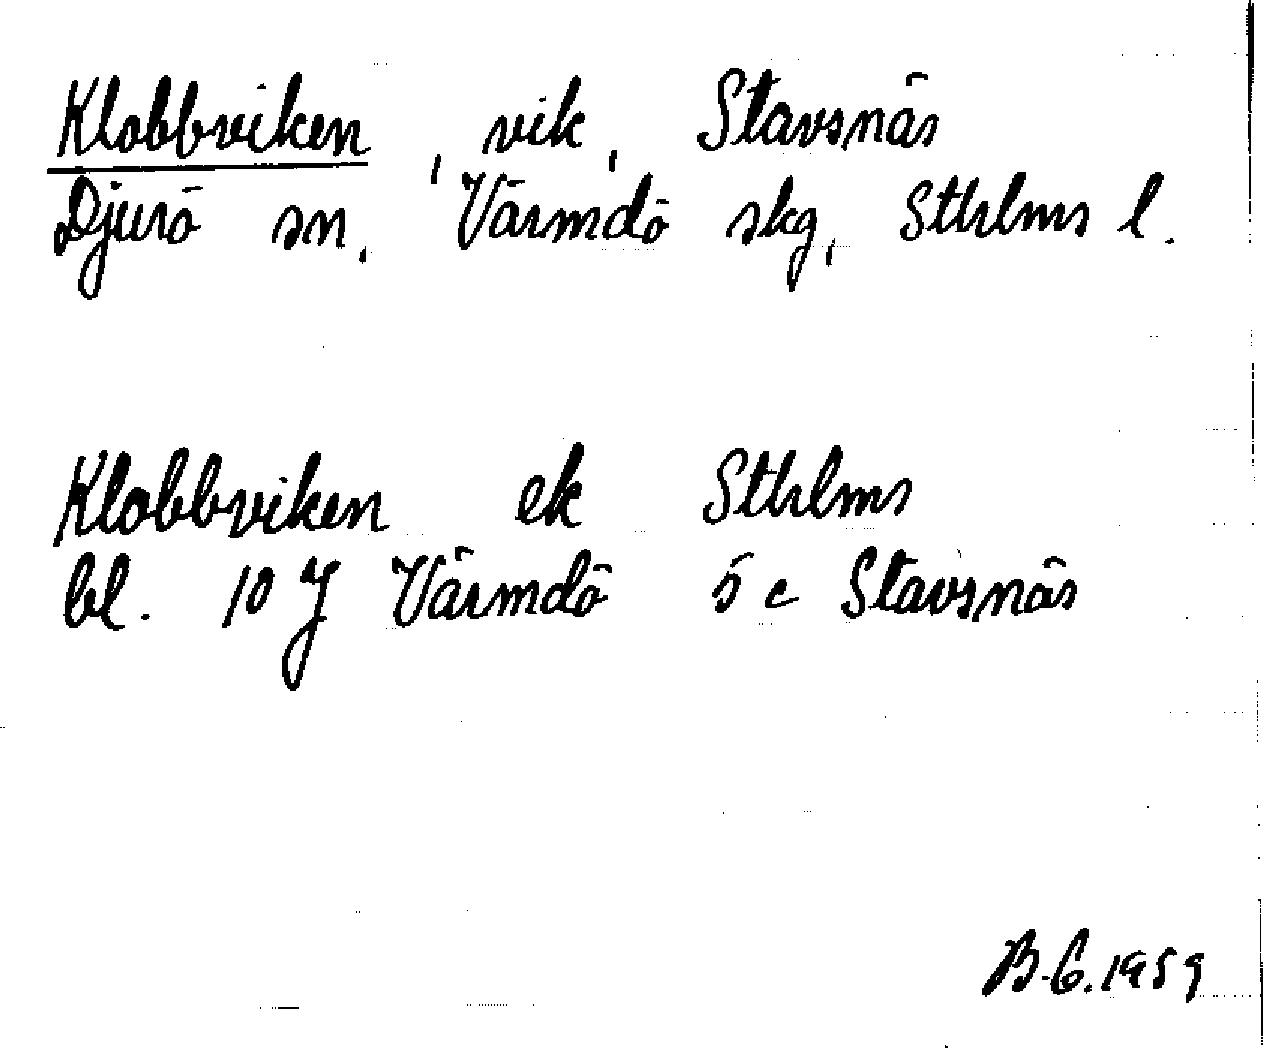 Klobbviken, vik, Stavsnäs
Djurö sn, Värmdö skg, Sthlms l.
Klobbviken ek Sthlms
bl. 10 J Värmdö 5 c Stavsnäs
B.G. 1959